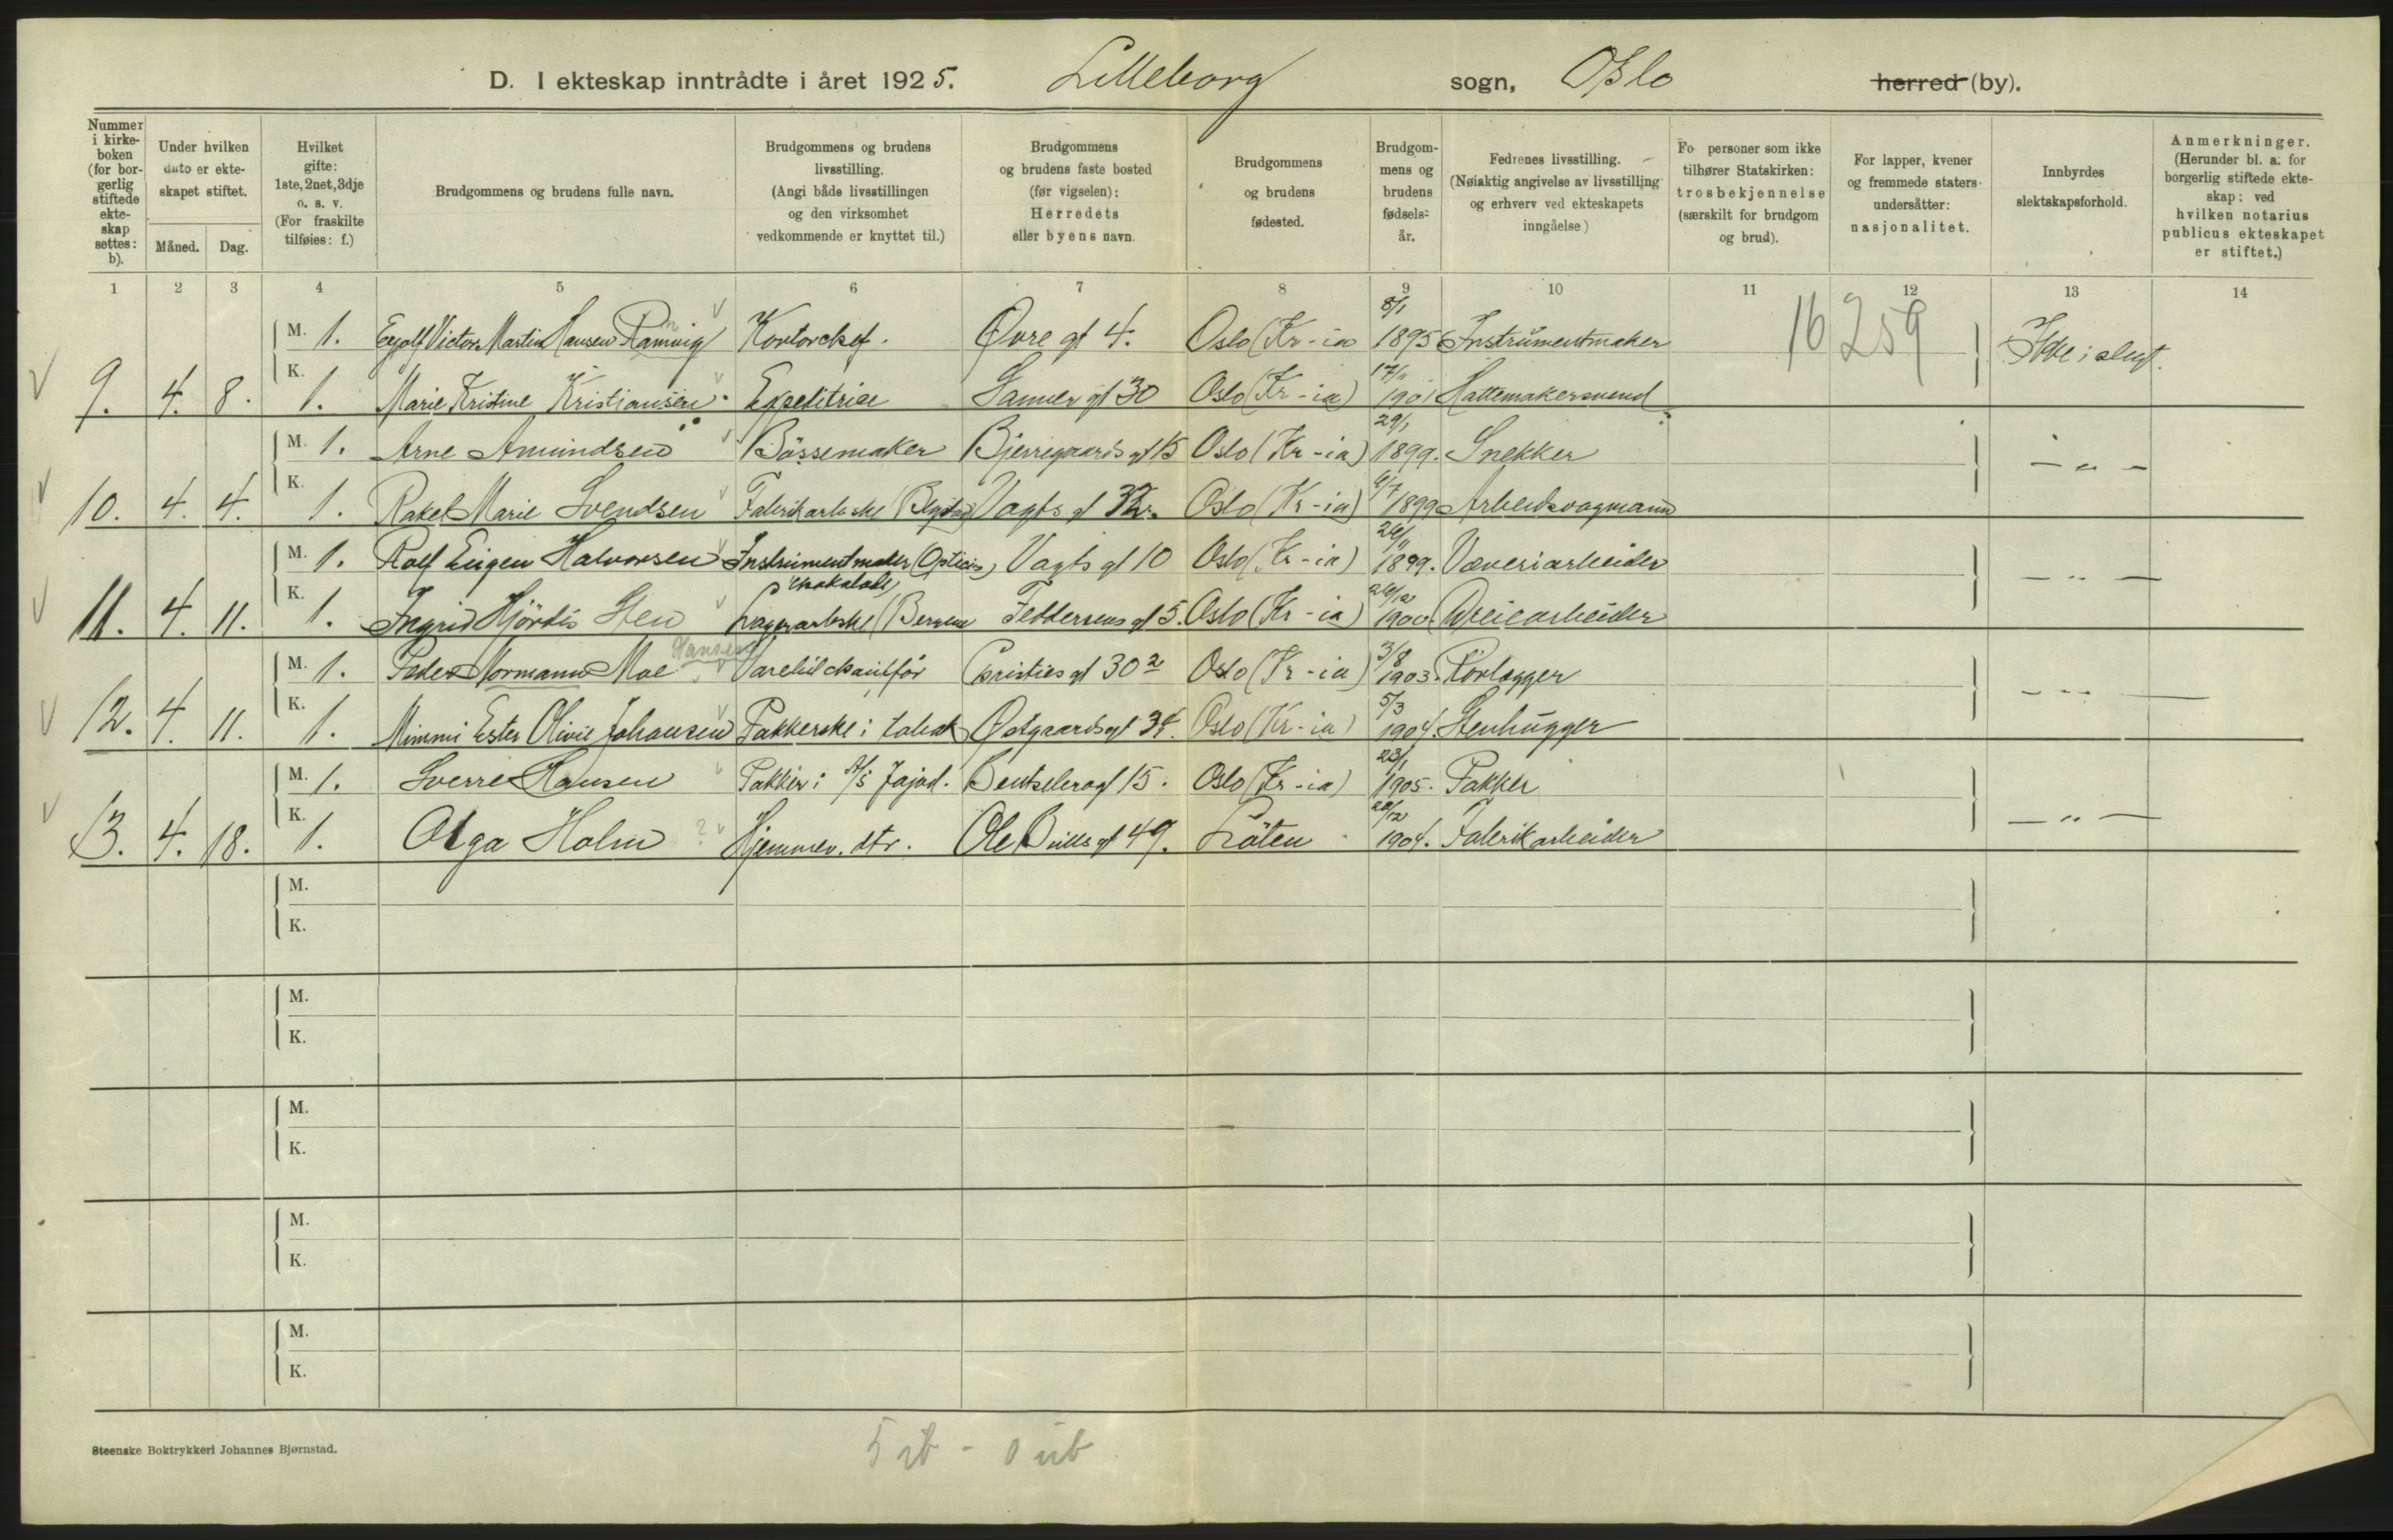 D. I ekteskap inntrådte i året 1925. Lilleborg sogn, Oslo herred (by).
Nummer i kirke-boken (for bor-gerlig stiftede ekte-skap settes: b).
Under hvilken dato er ekte-skapet stiftet.
Måned. Dag.
Hvilket gifte: 1ste, 2net, 3dje o. s. v. (For fraskilte tilføies: f.)
Brudgommens og brudens fulle navn.
Brudgommens og brudens livsstilling. (Angi både livsstillingen og den virksomhet vedkommende er knyttet til.)
Brudgommens og brudens faste bosted (før vigselen): Herredets eller byens navn.
Brudgommens og brudens fødested.
Brudgom-mens og brudens fødsels-år.
Fedrenes livsstilling. (Nøiaktig angivelse av livsstilling og erhverv ved ekteskapets inngåelse)
Fo personer som ikke tilhører Statskirken: trosbekjennelse (særskilt for brudgom og brud).
For lapper, kvener og fremmede staters undersåtter: nasjonalitet.
Innbyrdes slektskapsforhold.
Anmerkninger. (Herunder bl. a. for borgerlig stiftede ekte-skap: ved hvilken notarius publicus ekteskapet er stiftet.)
1 2 3 4 5 6 7 8 9 10 11 12 13 14
M. 1. Victor Martin Hansen Ramvig Kontorchef. Øvre gt 4. Oslo (Kr-ia 8/1 1895 Instrumentmaker 16259 Ikke i slegt.
9. 4. 8. K. 1. Marie Kristine Kristiansen Expeditrice Sanner gt 30 Oslo (Kr-ia) 17/11 1901 Hattemakersvend
M. 1. Arne Amundsen Bössemaker Bjerregaards gt 15 Oslo (Kr-ia) 29/1 1899. Snekker — " —
10. 4. 4. K. 1. Rakel Marie Svendsen Fabrikarb.ske Vogts gt Oslo (Kr-ia) 1899 Arbeidsvogmann
M. 1. Rolf Eigen Halvorsen Instrumentmaker (Optiker) Vogts gt 10 Oslo (Kr-ia) 26/11 1899. Væveriarbeider — " —
11. 4. 11. K. 1. Ingrid Hjördis Sten Lagerarb.ske (Bergene chokolade) Feddersens gt 5. Oslo (Kr-ia) 26/12 1900 Veiearbeider
M. 1. Peder Normann Moe Hansen Varebilchauffør Christies gt 30 2 Oslo (Kr-ia) 3/8 1903. Rörlægger — " —
12. 4. 11. K. 1. Mimmi Ester Olivie Johansen Pakkerske i tobak Østgaards gt Oslo (Kr-ia) 5/3 1904. Stenhugger
M. 1. Sverre Hansen Pakker i A/S Jajod. Bentselens gt 15. Oslo (Kr-ia) 23/1 1905. Pakker — " —
13. 4. 18. K. 1. Olga Holm ? Hjemmev. dtr. Ole Bulls gt 49. Löten 20/12 1904. Fabrikarbeider
M.
K.
M.
K.
M.
K.
M.
K.
M.
K.
Steenske Boktrykkeri Johannes Bjørnstad.
5 ib - 0 ub